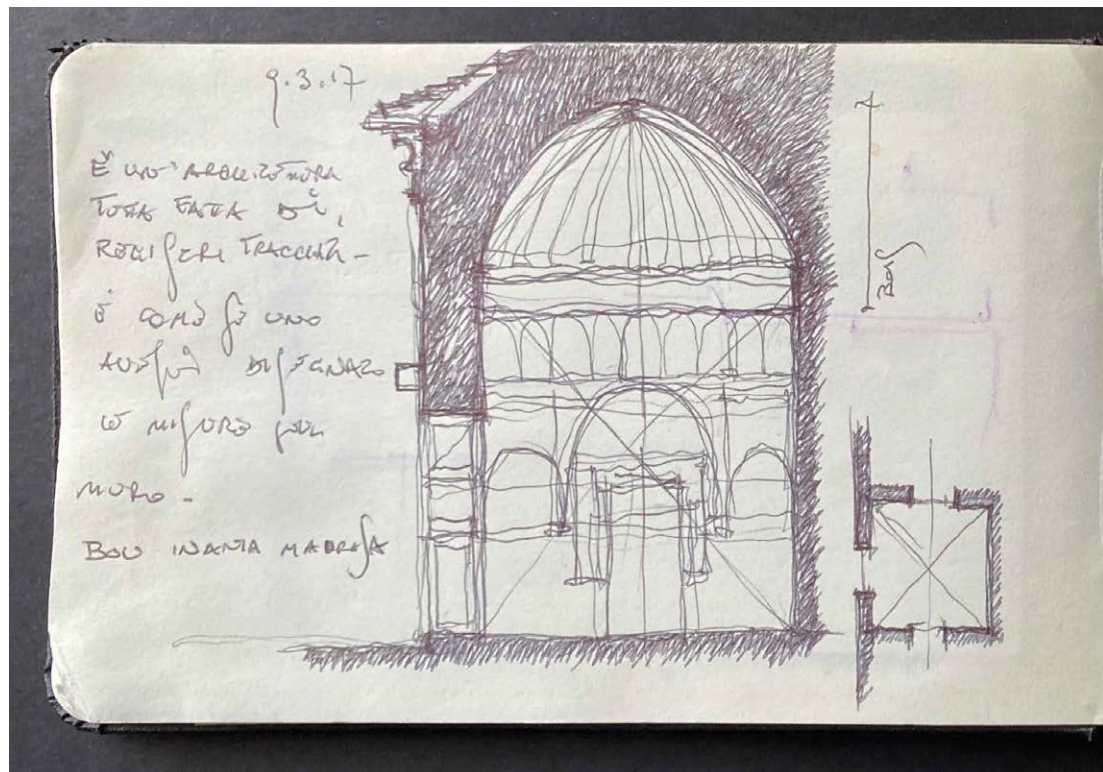 9.3.17
È UN'ARCHITETTURA
TUTTA FATTA DI
TRACCIATI -
È COME SE UNO
AVESSE DISEGNATO
LE MISURE SUL
MURO -
BOU INANIA MADRASA